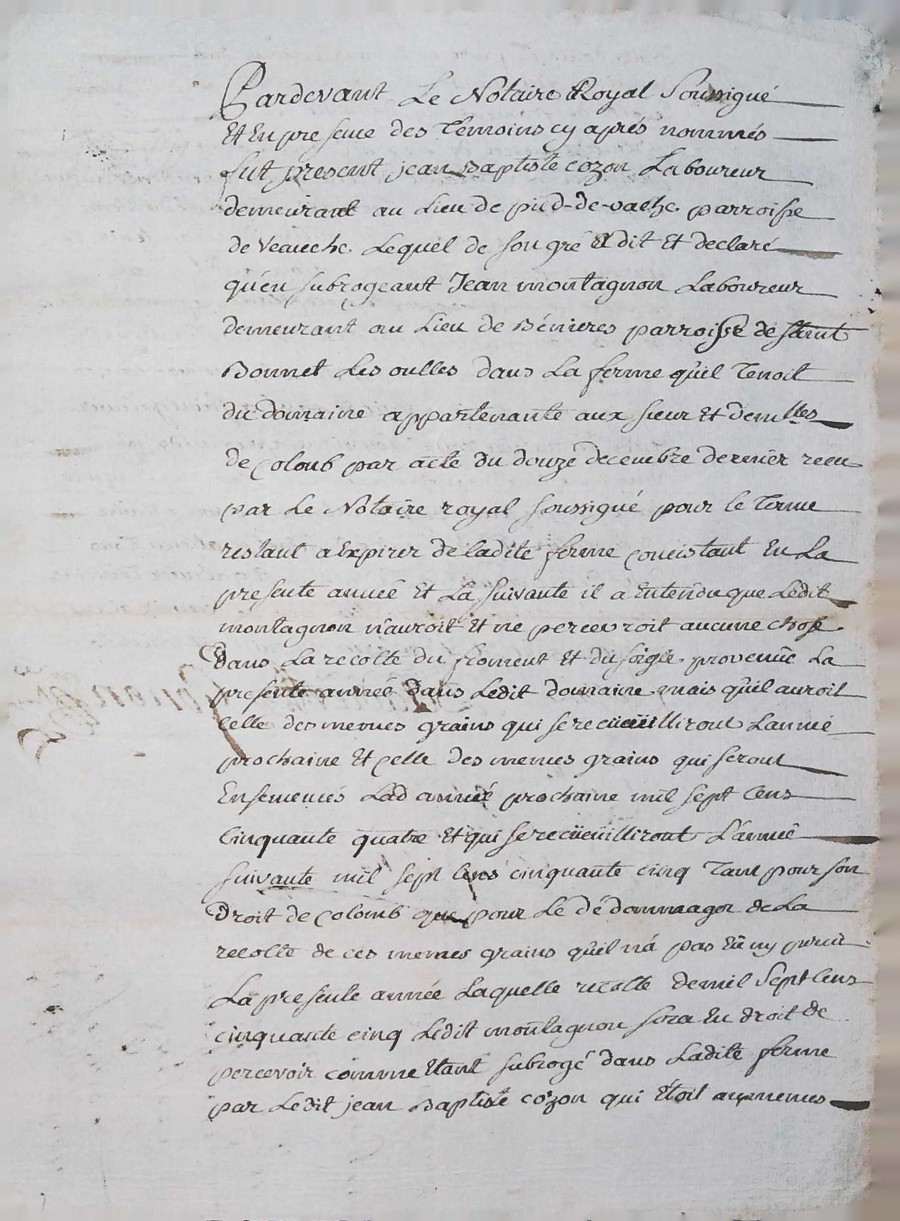 Pardevant Le Notaire Royal Soussigné
Et En presence des Temoins cy aprés nommés
fut present jean Baptiste cozon Laboureur
demeurant au Lieu de pied-de-vache parroisse
de Veauche Lequel de son gré a dit Et declaré
qu'en subrogeant Jean montagnon Laboureur
demeurant au Lieu de parroisse de Saint
Bonnet Les oulles dans La ferme qu'il Tenoit
du domaine appartenante aux sieur Et demlles
de colomb par acte du douze decembre dernier receu
par Le Notaire royal soussigné pour le Terme
restant a Expirer de ladite ferme concistant En La
presente année Et La suivante il a Entendu que Ledit
montagnon n'auroit Et ne percevroit aucune chose
dans La recolte du froment Et du seigle provenüe La
presente année dans Ledit domaine mais qu'il auroit
celle des memes grains qui se recüeilliront L'année
prochaine Et celle des memes grains qui seront
Ensemencés Lad année prochaine mil sept Cens
Cinquante quatre Et qui se recüeuilliront L'année
suivante mil sept Cens cinquante cinq Tant pour son
droit de colomb que pour Le dédommager de La
recolte de ces memes grains qu'il n'a pas Eü ny
La presente année Laquelle recolte de mil Sept Cens
cinquante cinq Ledit montagnon sera En droit de
percevoir comme Etant subrogé dans Ladite ferme
par Ledit jean Baptiste cozon qui Etoit aux memes